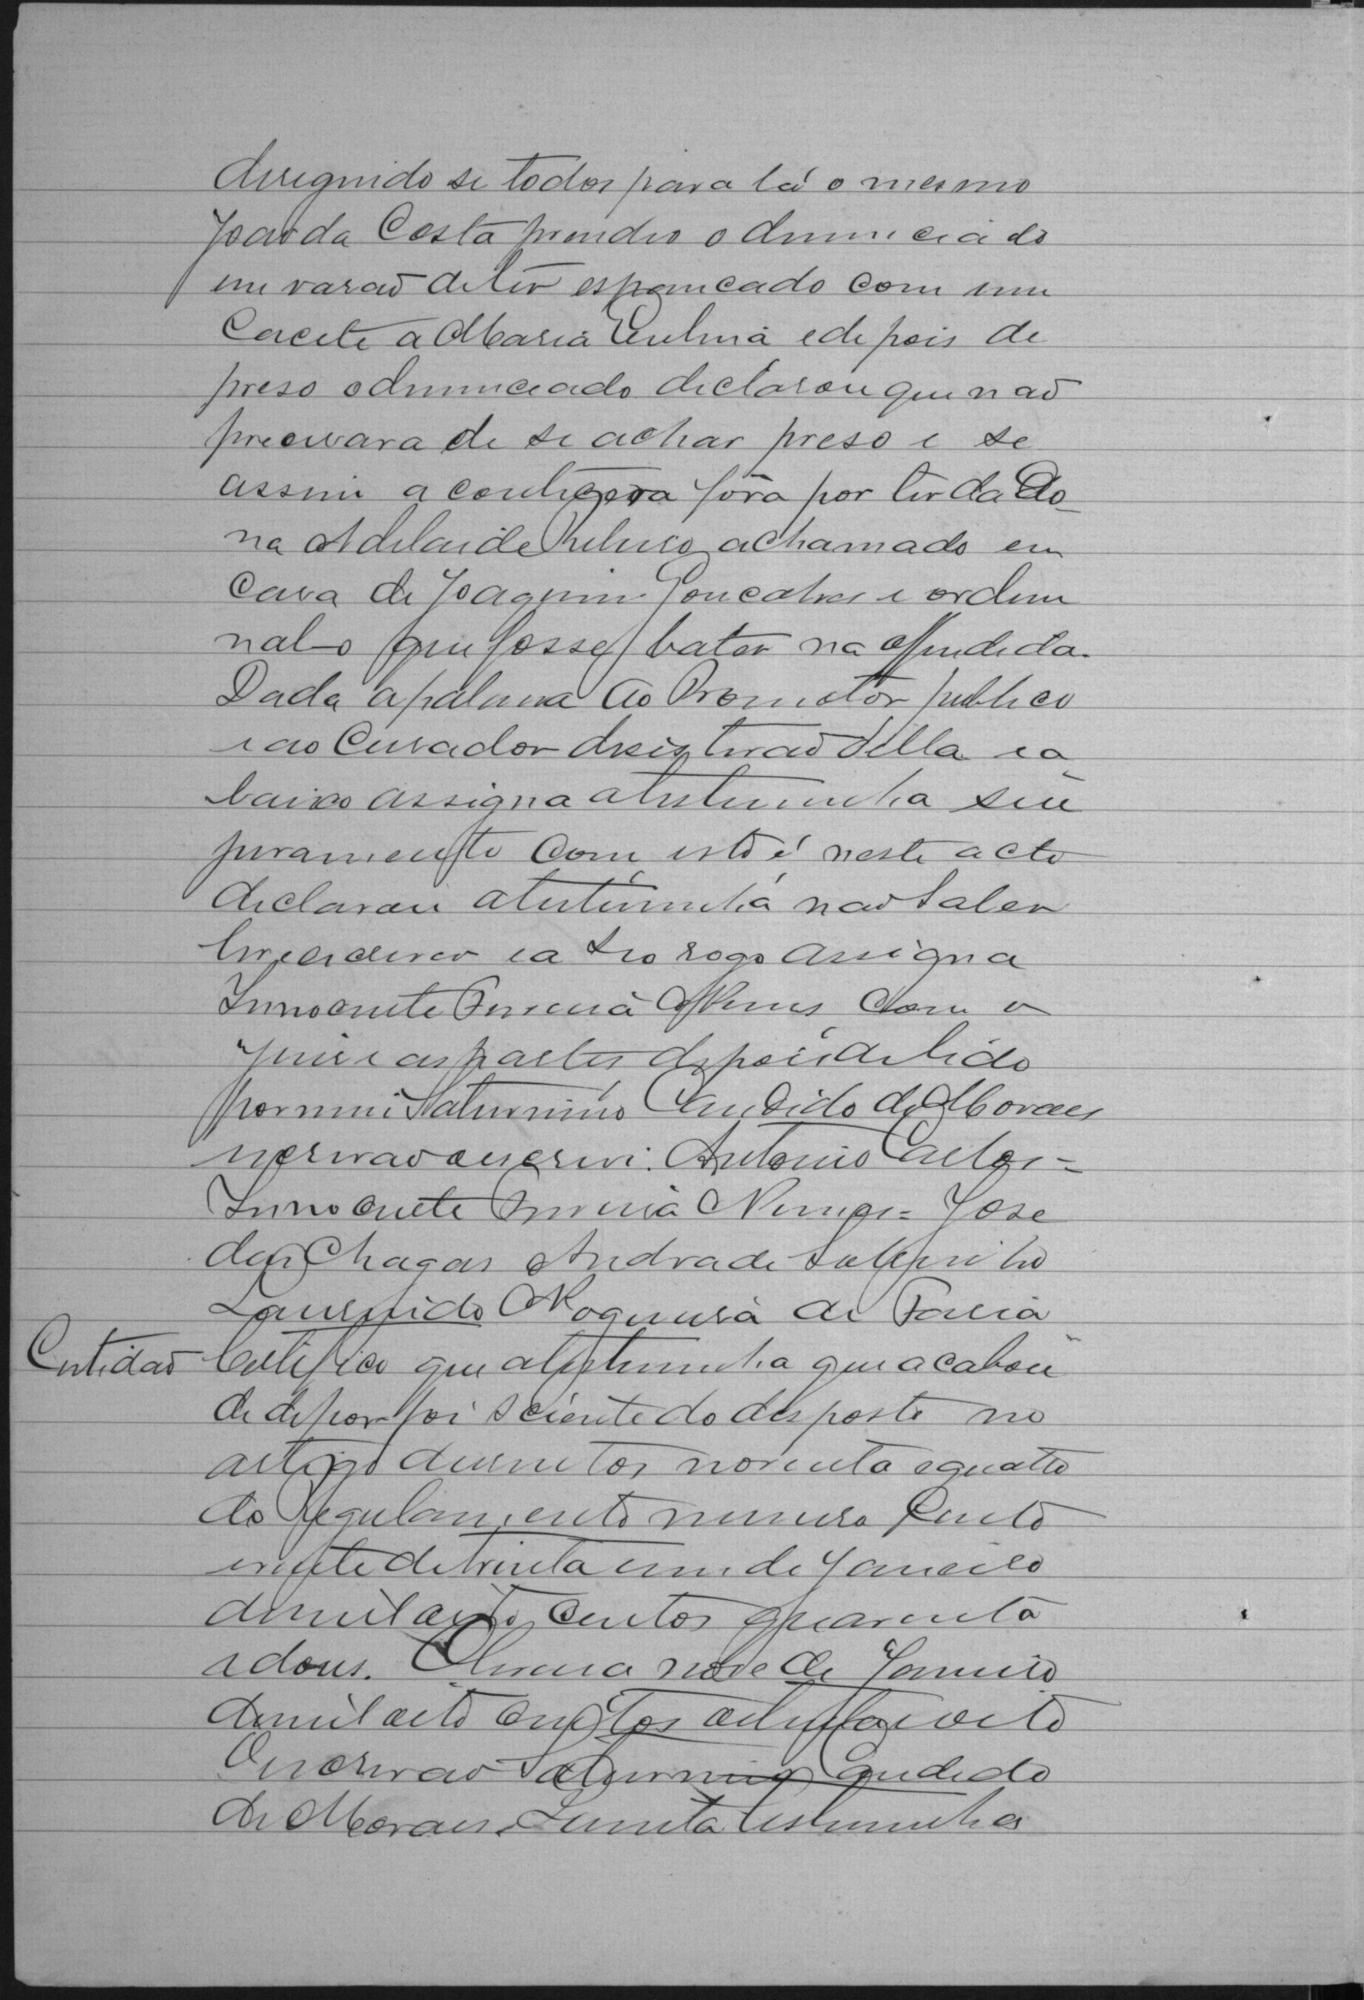 dirigindo se todos para lá o mesmo
João da Costa prendeo o denunciado
em rasaõ de ter espancado com um
Cacete a Maria e depois de
preso o denunciado declarou que naõ
precisara de se achar preso e se
assim acontecera fôra por ter da Do-
na Adelaide achamado em
Casa de Joaquim Goncalves e ordem
nal-o que fosse bater na offendida.
Dada a palavra ao Promotor publico
e ao Curador desistiraõ della e a
baixo assigna a testemunha seu
juramento com isto é neste acto
declarou a testemunha naõ saber
ler e escrever e a seo rogo assigna
Innocente Pereira Nunes com o
Juiz e as partes depois de lido
por mim Saturnino Candido de Moraes
escrivaõ o escrevi. Antonio Carlos =
Innocente Pereira Nunes = Jose
das Chagas Andrade Sobrinho
Laurindo Nogueira de Faria
Certidaõ Certifico que a testemunha que acabou
de depor foi sciente do desposto no
artigo dusentos noventa e quatro
do Regulamento numero Cento
e vinte de trinta e um de Janeiro
de mil oito centos quarenta
e dous. nove de Janeiro
de mil oito centos oitenta e oito
O escrivaõ Saturnino Candido
de Moraes. testemunha